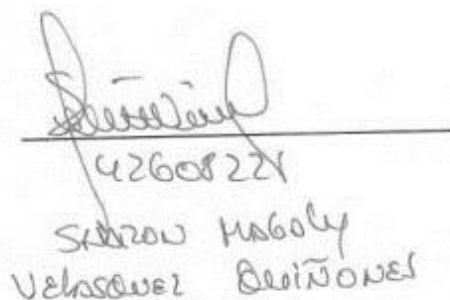 42608221
SHARON MAGALY
VELASQUEZ QUIÑONES